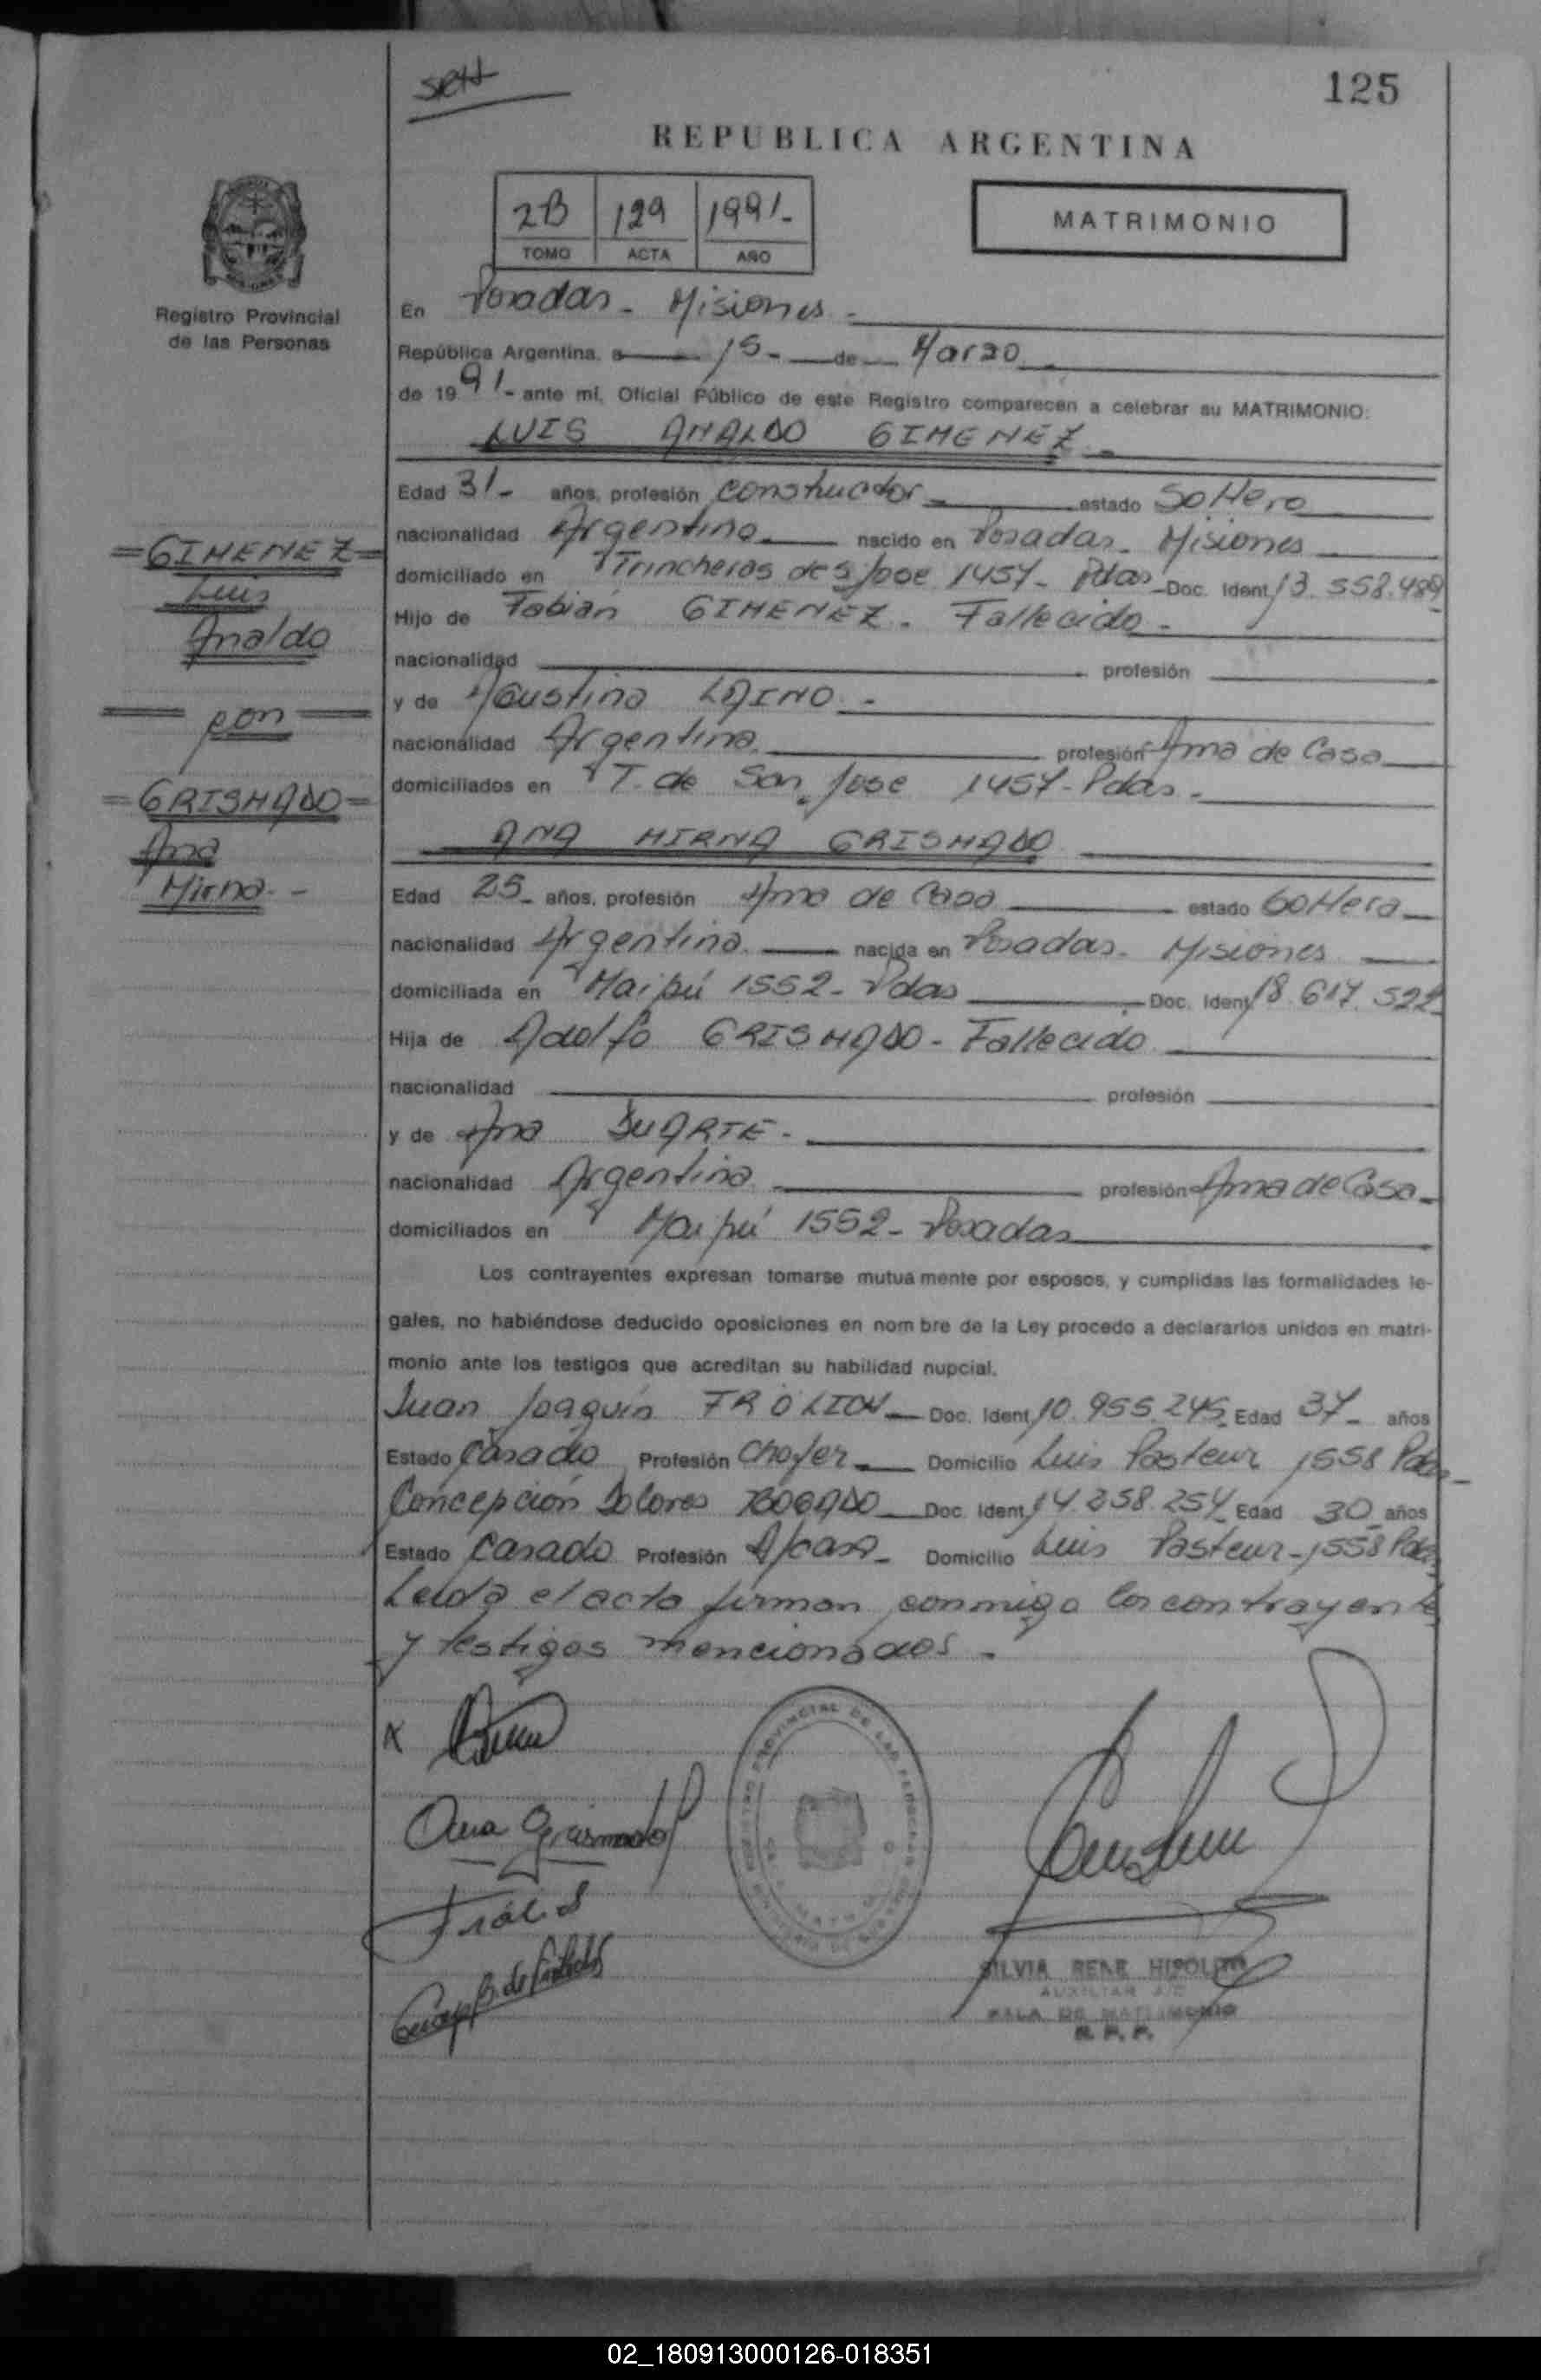 125
REPUBLICA ARGENTINA
2B 129 1991-
TOMO ACTA AÑO
MATRIMONIO
Registro Provincial
de las Personas
En Posadas - Misiones -
República Argentina, a 15 - de Marzo
de 1991 - ante mí, Oficial Público de este Registro comparecen a celebrar su MATRIMONIO:
LUIS ANALDO GIMENEZ -
Edad 31 - años, profesión Constructor - estado Soltero
nacionalidad Argentina nacido en Posadas - Misiones
domiciliado en Trincheras de S Jose 1457 - Pdas - Doc. Ident. 13.558.489
Hijo de Fabián GIMENEZ - Fallecido -
nacionalidad profesión
y de Agustina LAINO -
nacionalidad Argentina profesión Ama de Casa
domiciliados en T. de San Jose 1457 - Pdas -
ANA MIRNA GRISMADO
Edad 25 - años, profesión Ama de Casa estado Soltera
nacionalidad Argentina nacida en Posadas - Misiones
domiciliada en Maipú 1552 - Pdas Doc. Ident. 18.617.522
Hija de Adolfo GRISMADO - Fallecido
nacionalidad profesión
y de Ana DUARTE -
nacionalidad Argentina profesión Ama de Casa -
domiciliados en Maipú 1552 - Posadas
Los contrayentes expresan tomarse mutuamente por esposos, y cumplidas las formalidades le-
gales, no habiéndose deducido oposiciones en nombre de la Ley procedo a declararlos unidos en matri-
monio ante los testigos que acreditan su habilidad nupcial.
Juan Joaquín FRÖLICH - Doc. Ident. 10.955.245 - Edad 37 - años
Estado Casado Profesión Chofer - Domicilio Luis Pasteur 1558 Pdas -
Concepción Dolores BOGADO Doc. Ident. 14.258.254 Edad 30 años
Estado Casado Profesión A/casa - Domicilio Luis Pasteur - 1558 Pdas
Leida el acta firman conmigo los contrayentes
y testigos mencionados -
=GIMENEZ=
Luis
Analdo
= con =
=GRISMADO=
Ana
Mirna -
X
Ana Grismado
REGISTRO PROVINCIAL DE LAS PERSONAS
SILVIA RENE HIPOLITO
AUXILIAR A/C
SALA DE MATRIMONIO
R. P. P.
02_180913000126-018351